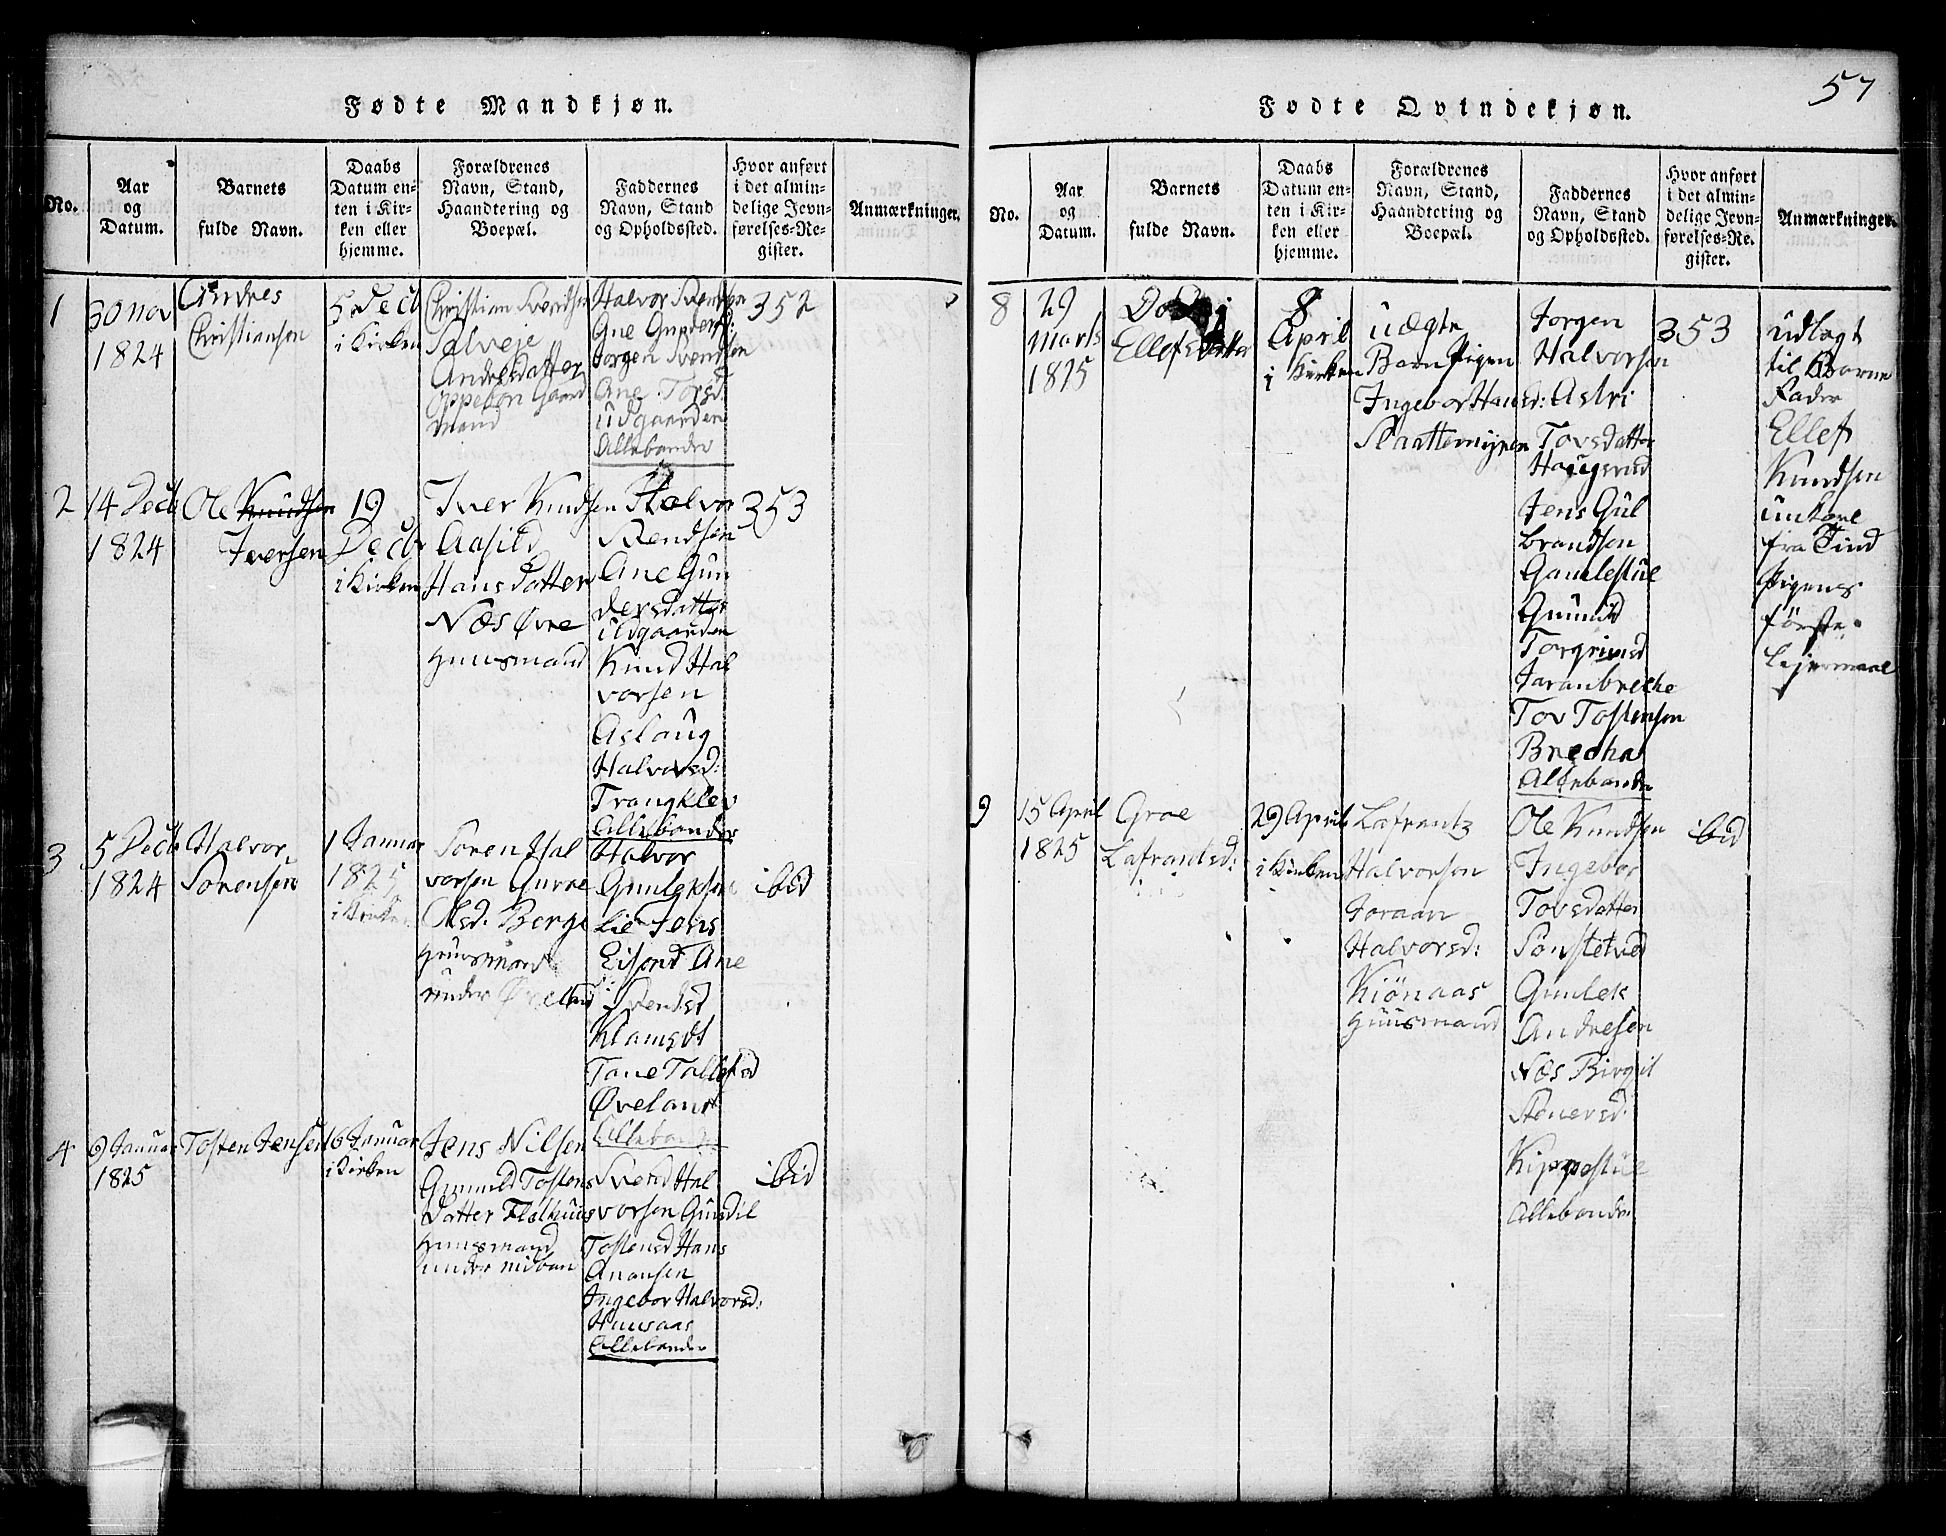 Fødte Mandkjøn.
No.
Aar
og
Datum.
Barnets
fulde Navn.
Daabs
Datum en-
ten i Kir-
ken eller
hjemme.
Forældrenes
Navn, Stand,
Haandtering og
Boepæl.
Faddernes
Navn, Stand
og Opholdssted.
Hvor anført
i det almin-
delige Jevn-
førelses-Re-
gister.
Anmærkninger.
1
30 Nov
1824
Andres
Christiansen
5 Decb
i Kirken
Christian Svendsen
Salveje
Andresdatter
Oppebøn Gaard
mand
Halvor Svendsen
Ane Gundersd:
Jorgen Svendsen
Ane Torsd:
Udgaarden
Allebønder
352
2
14 Decb
1824
Ole Knudsen
Iversen
19
Decbr
i Kirken
Iver Knudsen
Aasild
Hansdatter
Næs Øvre
Huusmand
Halvor
Svendsen
Ane Gun
dersdatter
Udgaarden
Knud Hal
vorsen
Aslaug
Halvorsd:
Trangklev
Allebønder
353
3
5 Decb
1824
Halvor
Sorensen
1 Januar
1825
i Kirken
Soren Hal
vorsen Gurve
Olsd: Berge
Huusmand
under Øveland
Halvor
Gunleksen
Lie Jens
Ane
Svendsd
Tone Tallefsd
Øveland
Allebønder
ibid
4
9 Januar
1825
Tosten Jensen
16 Januar
i Kirken
Jens Nilsen
Gunnild Tostens
Datter Flathuus
Huusmand
under
Svend Hal
vorsen Gundil
Tostensd Hans
Anonsen
Ingebor Halvorsd:
Huusaas
Allebønder
ibid
57
Fødte Qvindekjøn.
No.
Aar
og
Datum.
Barnets
fulde Navn.
Daabs
Datum en-
ten i Kir-
ken eller
hjemme.
Forældrenes
Navn, Stand,
Haandtering og
Boepæl.
Faddernes
Navn, Stand
og Opholdssted.
Hvor anført
i det almin-
delige Jevn-
førelses-Re-
gister.
Anmærkninger.
8
29
Marts
1825
Ellefsdatter
8
April
i Kirken
Uægte
Barn Pigen
Ingebor Hansd:
Slaattemyren
Jorgen
Halvorsen
Astri
Tovsdatter
Jens Gul
brandsen
Gamlestul
Gunnild
Torgrimsd
Jaranbrecke
Tov Tostensen
Brecka
Allebønder
353
Udlagt
til Barne
Fader
Ellef
Knudsen
Unkarl
fra Tind
Pigens
første
Lejermaal
9
15 April
1825
Groe
Lafrantsd:
29 April
i Kirken
Lafrantz
Halvorsen
Joraan
Halvorsd:
Kiönaas
Huusmand
Ole Knudsen
Ingebor
Tovsdatter
Sönstetved
Gunlek
Andresen
Næs Birgit
Stenersd:
Kippestul
Allebønder
ibid